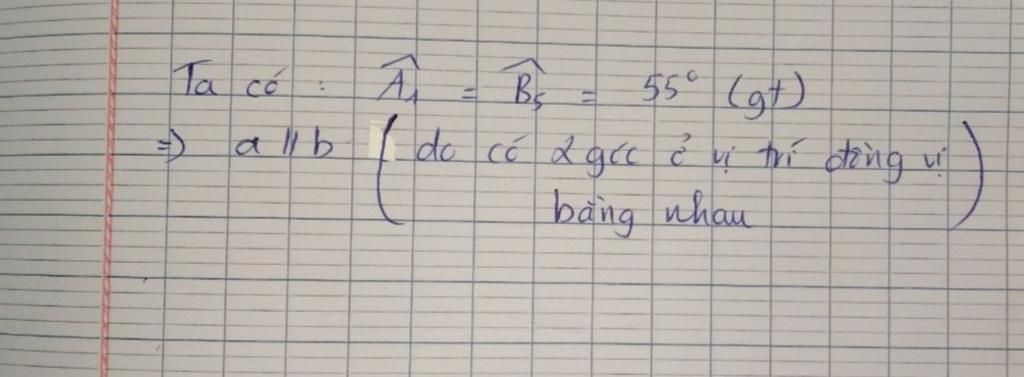 Ta có : Â₁ = B̂₅ = 55° (gt)
=> a // b ( do có 2 góc ở vị trí đồng vị
bằng nhau )